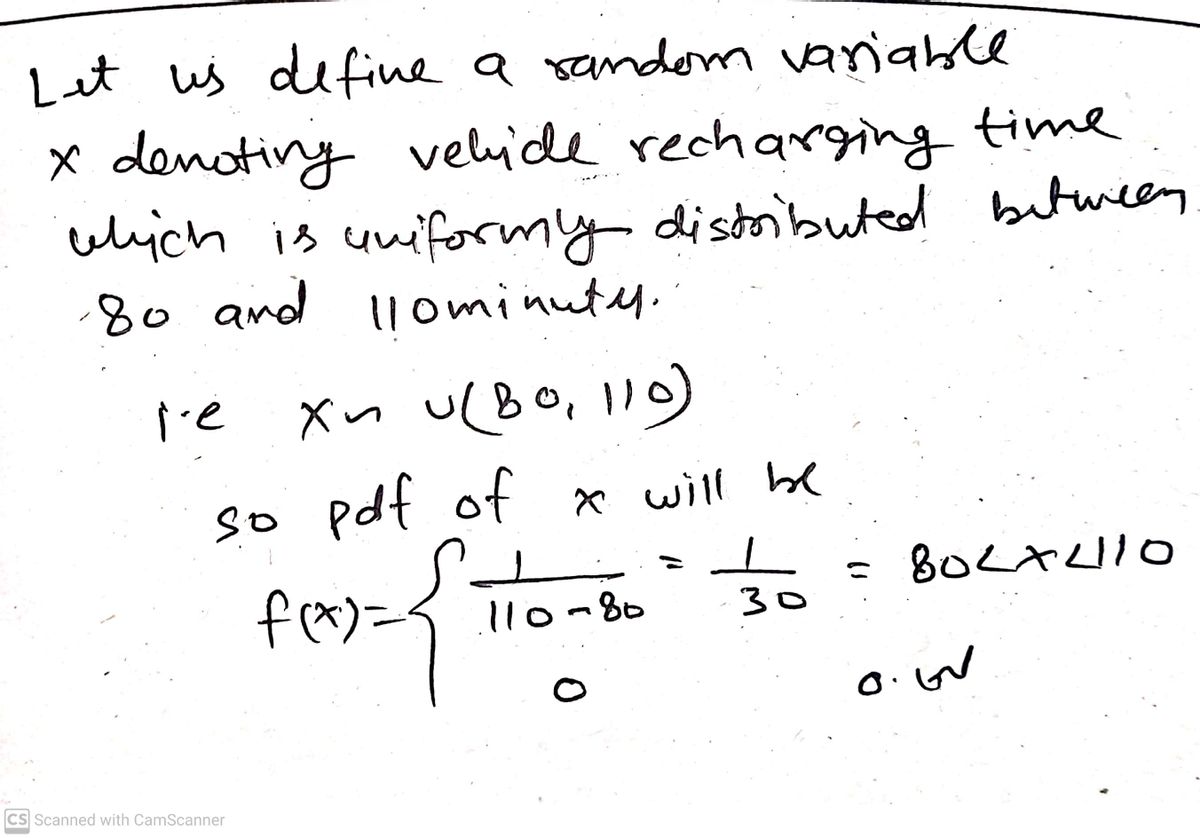 Let us define a random variable
x denoting vehicle recharging time
which is uniformly distributed between
80 and 110 minutes.
i.e x ~ U(80, 110)
so pdf of x will be
f(x) = { 1/(110-80) = 1/30 = 80<x<110
0 o.w
CS Scanned with CamScanner